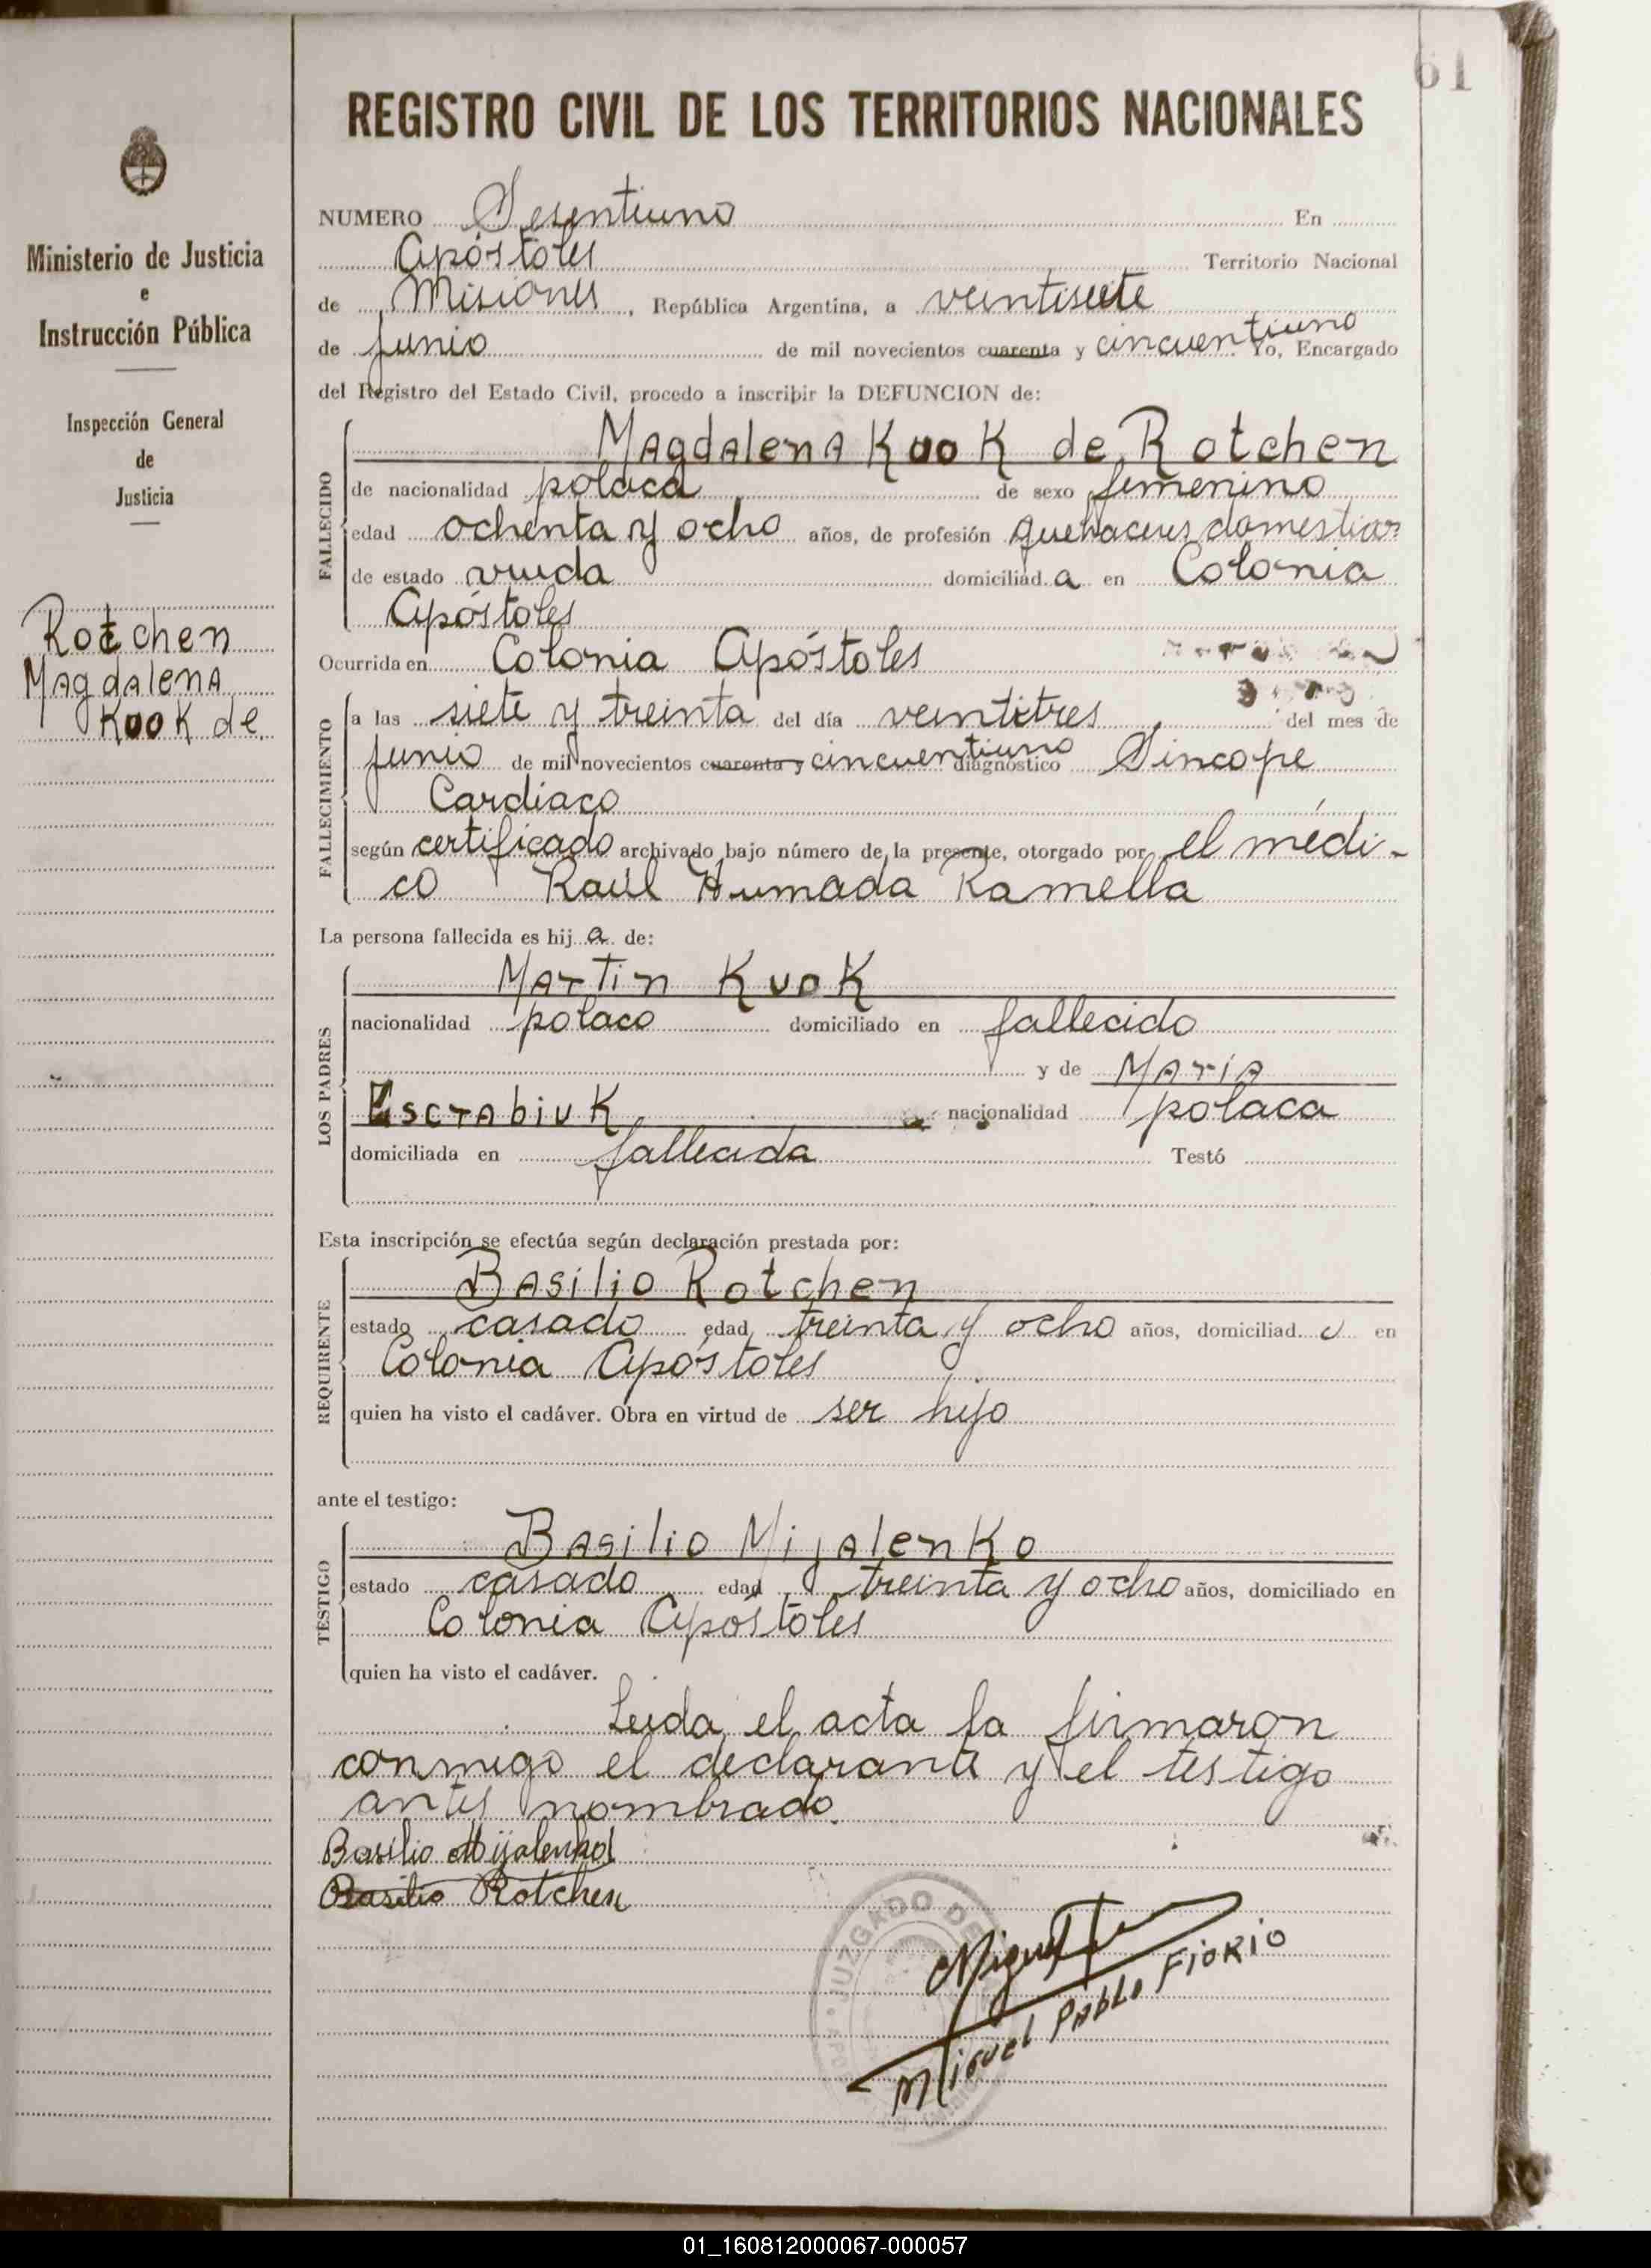 61
REGISTRO CIVIL DE LOS TERRITORIOS NACIONALES
Ministerio de Justicia
e
Instrucción Pública
Inspección General
de
Justicia
Rotchen
Magdalena
Kuok de
NUMERO Sesentiuno En
Apóstoles Territorio Nacional
de Misiones, República Argentina, a veintisiete
de junio de mil novecientos cuarenta y cincuentiuno. Yo, Encargado
del Registro del Estado Civil, procedo a inscribir la DEFUNCION de:
FALLECIDO
Magdalena Kuok de Rotchen
de nacionalidad polaca de sexo femenino
edad ochenta y ocho años, de profesión quehaceres domesticos
de estado viuda domiciliad a en Colonia
Apóstoles
Ocurrida en Colonia Apóstoles
FALLECIMIENTO
a las siete y treinta del día veintitres del mes de
junio de mil novecientos cuarenta y cincuentiuno diagnóstico Síncope
Cardíaco
según certificado archivado bajo número de la presente, otorgado por el médi-
co Raúl Humada Ramella
La persona fallecida es hij a de:
LOS PADRES
Martin Kuok
nacionalidad polaco domiciliado en fallecido
y de Maria
Escrabiuk nacionalidad polaca
domiciliada en fallecida Testó
Esta inscripción se efectúa según declaración prestada por:
REQUIRENTE
Basilio Rotchen
estado casado edad treinta y ocho años, domiciliad o en
Colonia Apóstoles
quien ha visto el cadáver. Obra en virtud de ser hijo
ante el testigo:
TESTIGO
Basilio Mijalenko
estado casado edad treinta y ocho años, domiciliado en
Colonia Apóstoles
quien ha visto el cadáver.
Leida el acta la firmaron
conmigo el declarante y el testigo
antes nombrado.
Basilio Mijalenko
Basilio Rotchen
JUZGADO DE
Miguel
Miguel Pablo Fiorio
01_160812000067-000057